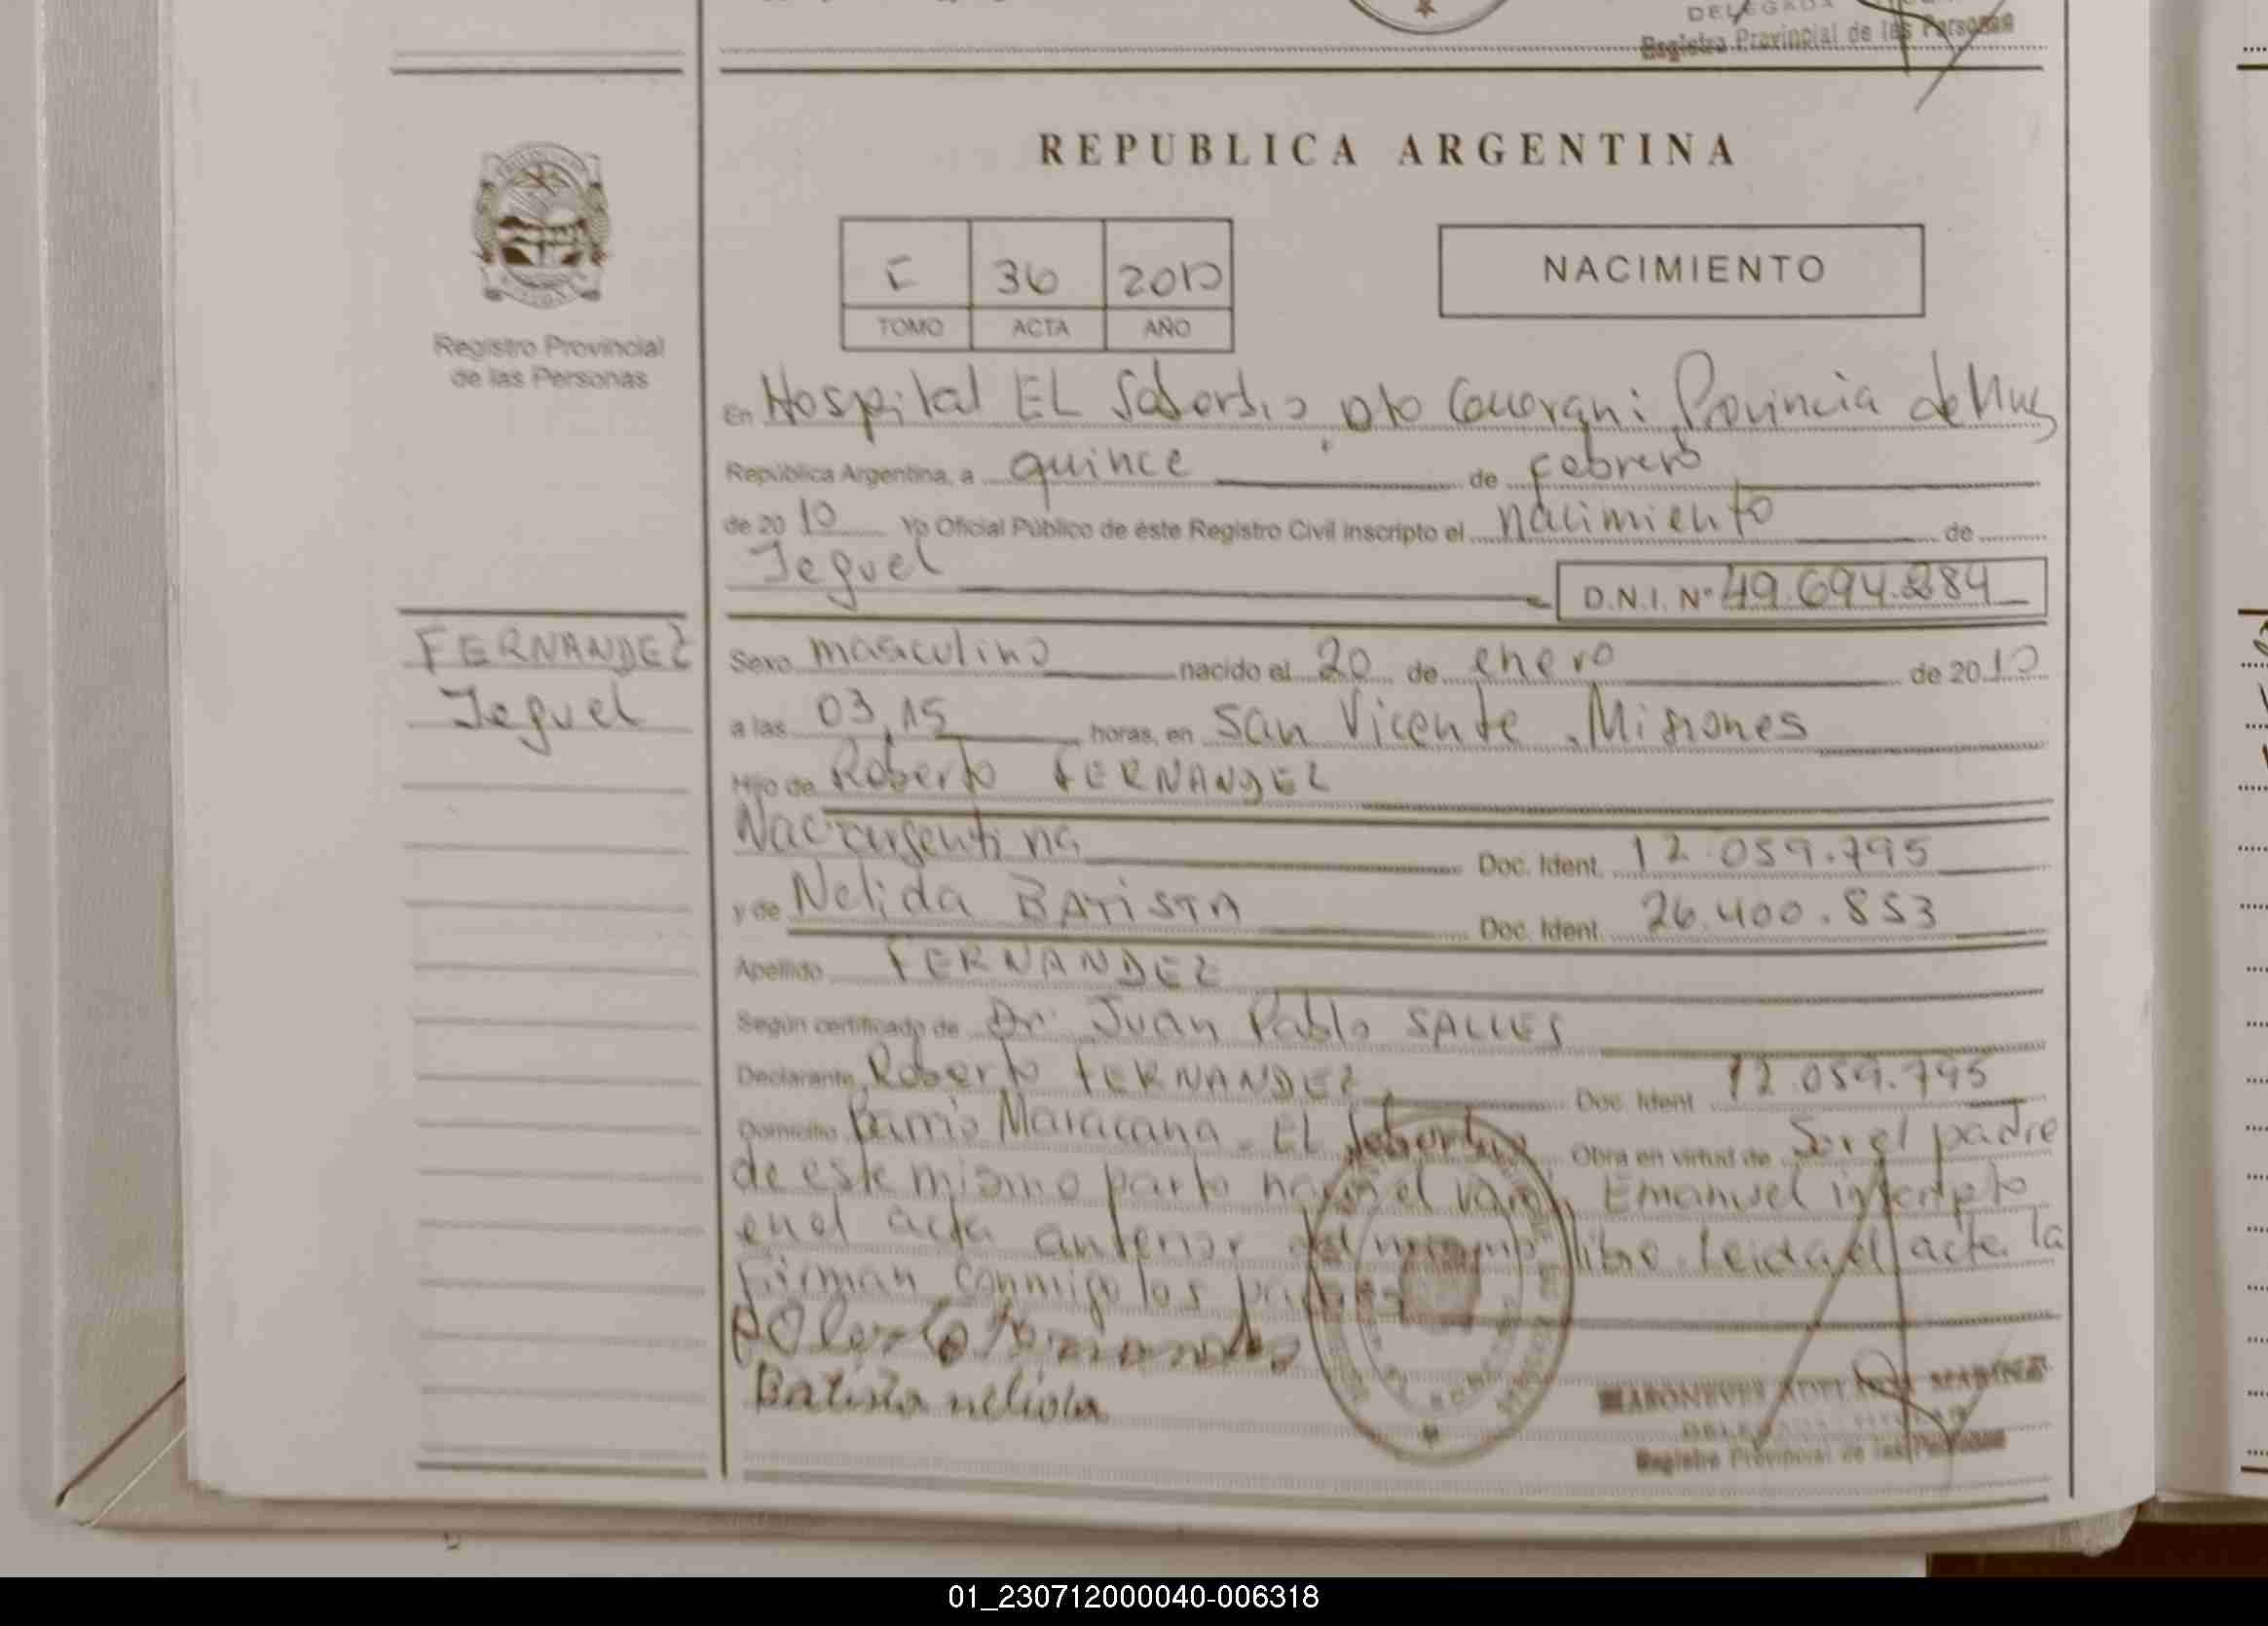 DELEGADA
Registro Provincial de las Personas
REPUBLICA ARGENTINA
36 2010
TOMO ACTA AÑO
NACIMIENTO
Registro Provincial
de las Personas
En Hospital EL Soberbio Dto Provincia de
República Argentina, a quince de febrero
de 2010 Yo Oficial Público de éste Registro Civil inscripto el nacimiento de
Jeguel
D.N.I. Nº 49.694.284
FERNANDEZ
Jeguel
Sexo masculino nacido el 20 de enero de 2010
a las 03,15 horas, en San Vicente . Misiones
Hijo de Roberto FERNANDEZ
Nac argentina Doc. Ident. 12.059.795
y de Nelida BATISTA Doc. Ident. 26.400.853
Apellido FERNANDEZ
Según certificado de Dr Juan Pablo SALLES
Declarante Roberto FERNANDEZ Doc. Ident. 12.059.795
Domicilio Barrio Maracana - EL Soberbio Obra en virtud de Ser el padre
de este mismo parto el varon Emanuel inscripto
en el acta anterior del mismo libro. Leida el acta la
Firman conmigo los padres
Roberto Fernandez
Batista nelida
Registro Provincial de las Personas
01_230712000040-006318